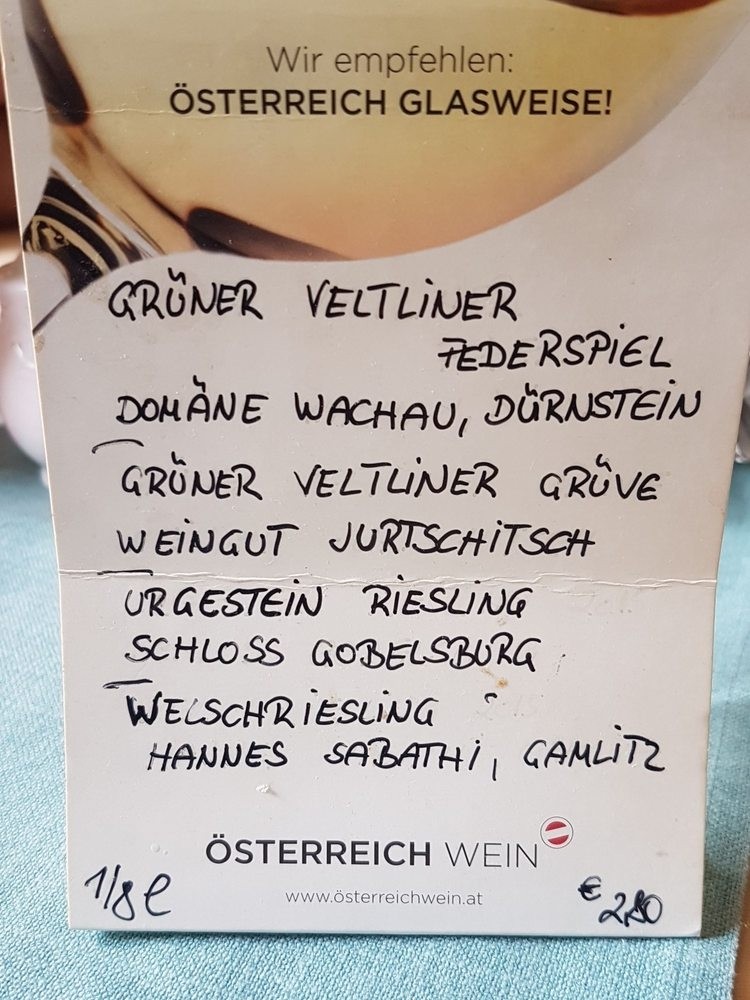 Wir empfehlen:
ÖSTERREICH GLASWEISE!
GRÜNER VELTLINER
FEDERSPIEL
DOMÄNE WACHAU, DÜRNSTEIN
GRÜNER VELTLINER GRÜVE
WEINGUT JURTSCHITSCH
URGESTEIN RIESLING
SCHLOSS GOBELSBURG
WELSCHRIESLING
HANNES SABATHI, GAMLITZ
ÖSTERREICH WEIN
1/8 l
www.österreichwein.at
€ 2,80